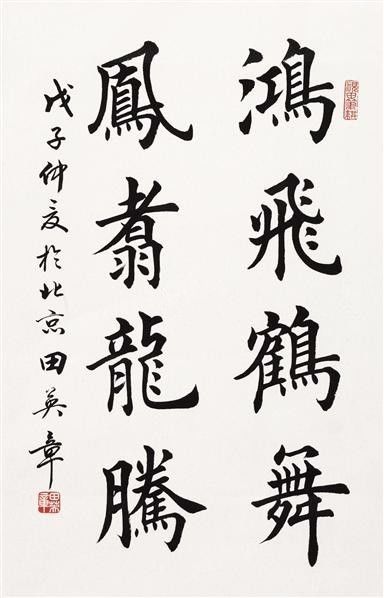 鴻飛鶴舞
鳳翥龍騰
戊子仲夏於北京田英章